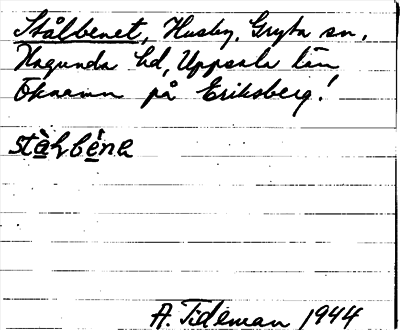 Stålbenet, Husby, Gryta sn,
Hagunda hd, Uppsala län
Öknamn på Eriksberg!
stàlbéna
A. Tideman 1944